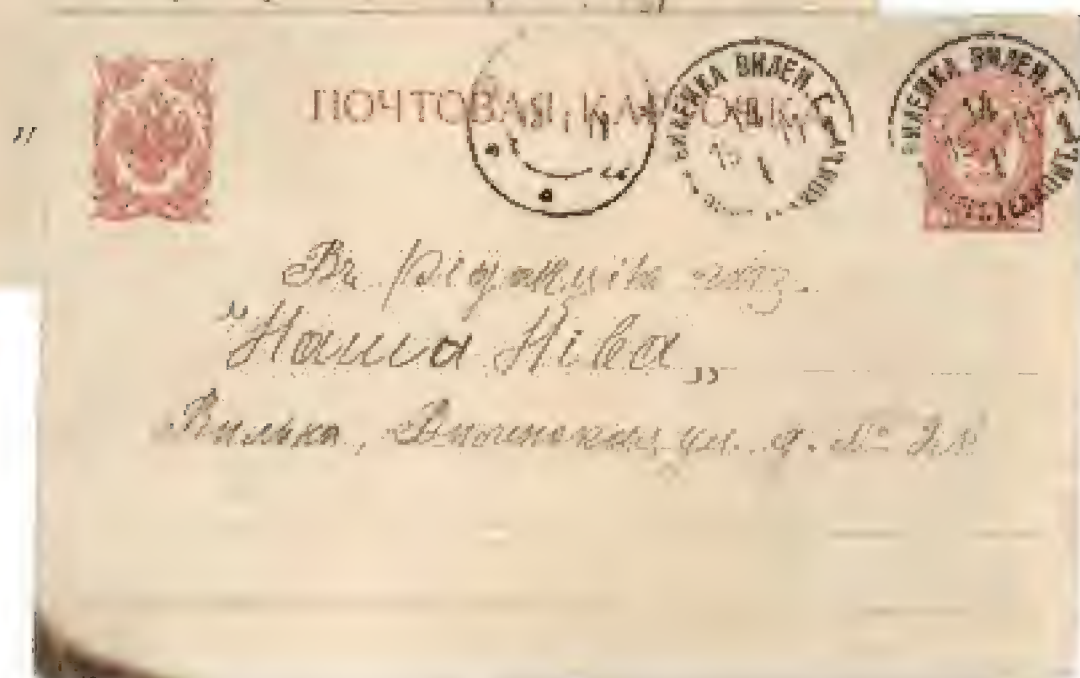 ПОЧТОВАЯ КАРТОЧКА
ВИЛЕЙКА ВИЛЕН. Г.
ВИЛЕЙКА ВИЛЕН. Г.
Въ рэдакцію газ.
„Наша Ніва„
Вильна, ул. д. №